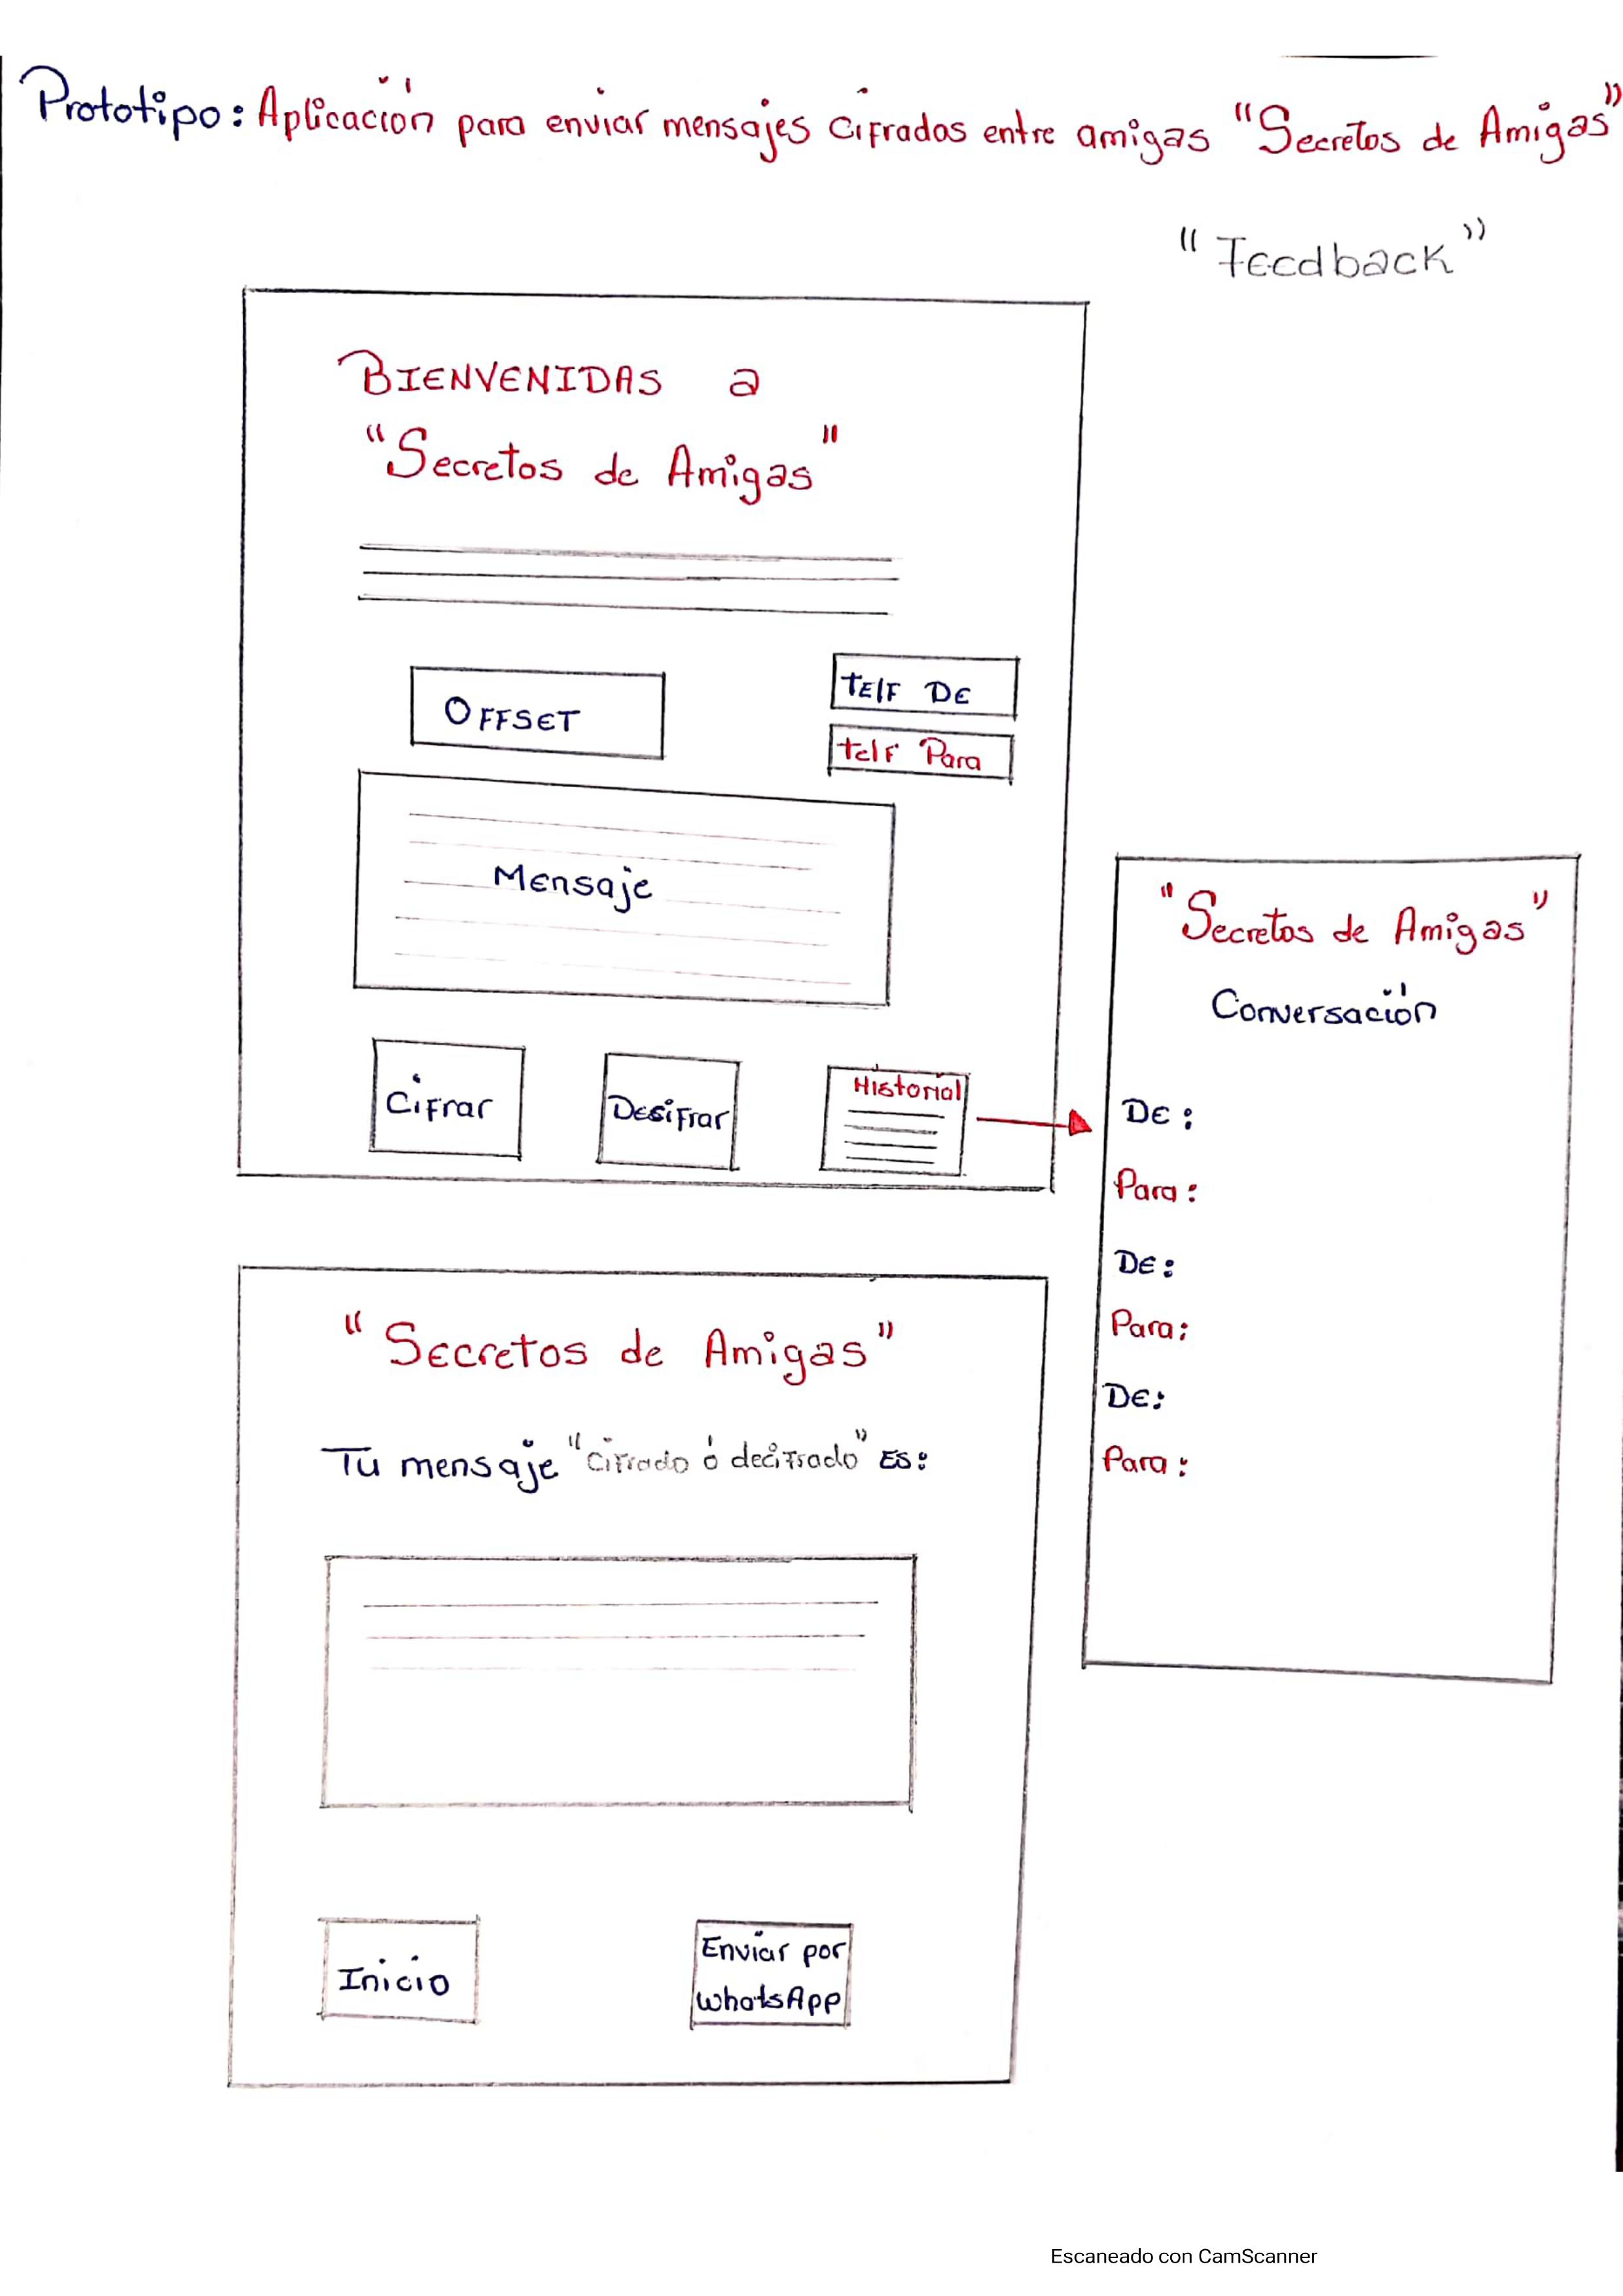 Prototipo: Aplicación para enviar mensajes cifrados entre amigas "Secretos de Amigas"
"Feedback"
BIENVENIDAS a
"Secretos de Amigas"
OFFSET
TELF DE
telf Para
Mensaje
Cifrar
Desifrar
Historial
"Secretos de Amigas"
Conversación
DE:
Para:
DE:
Para:
DE:
Para:
"Secretos de Amigas"
Tu mensaje "cifrado ó decifrado" ES:
Inicio
Enviar por
WhatsApp
Escaneado con CamScanner